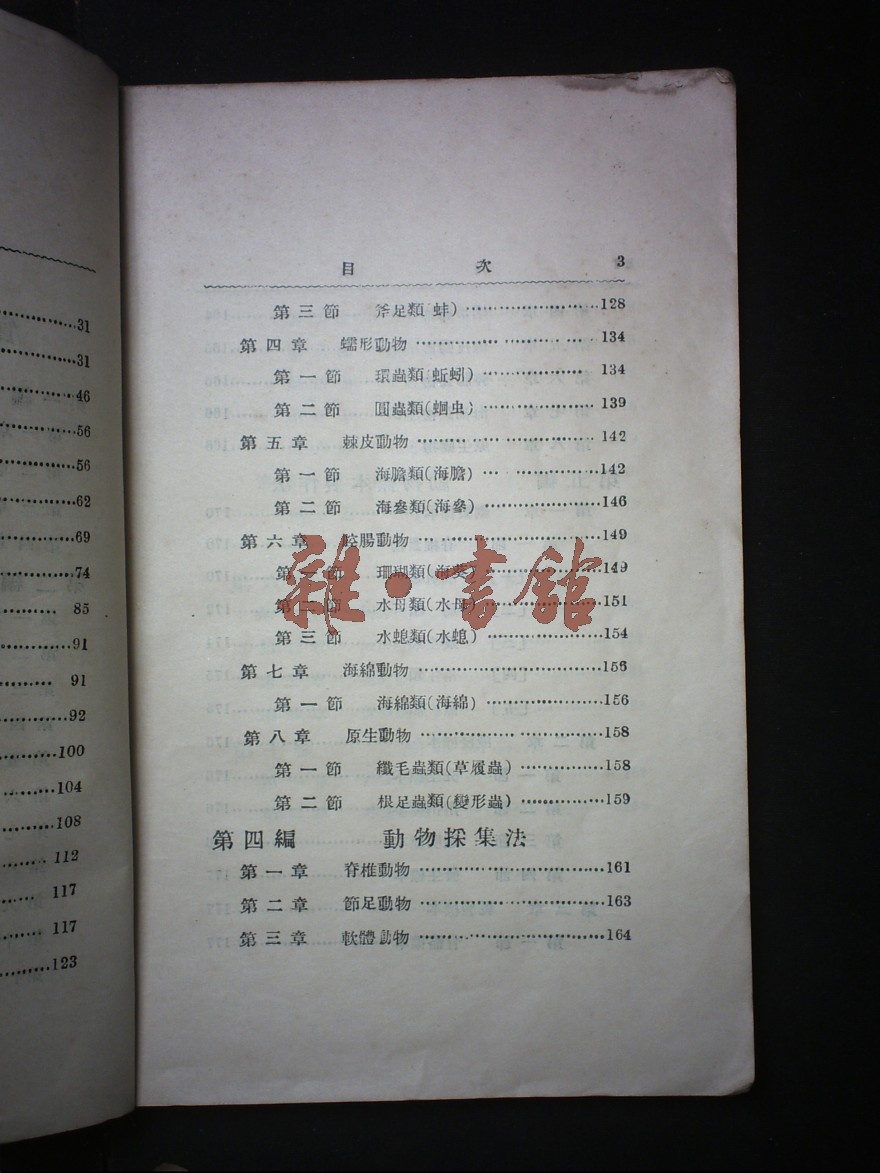 31
31
46
56
56
62
69
74
85
91
91
92
100
104
108
112
117
117
123
目 次 3
第三節 斧足類(蚌)……………………128
第四章 蠕形動物……………………134
第一節 環蟲類(蚯蚓)……………………134
第二節 圓蟲類(蛔虫)……………………139
第五章 棘皮動物……………………142
第一節 海膽類(海膽)……………………142
第二節 海參類(海參)……………………146
第六章 腔腸動物……………………149
第一節 珊瑚類(海葵)……………………149
第二節 水母類(水母)……………………151
第三節 水螅類(水螅)……………………154
第七章 海綿動物……………………156
第一節 海綿類(海綿)……………………156
第八章 原生動物……………………158
第一節 纖毛蟲類(草履蟲)……………………158
第二節 根足蟲類(變形蟲)……………………159
第四編 動物採集法
第一章 脊椎動物……………………161
第二章 節足動物……………………163
第三章 軟體動物……………………164
雜·書館